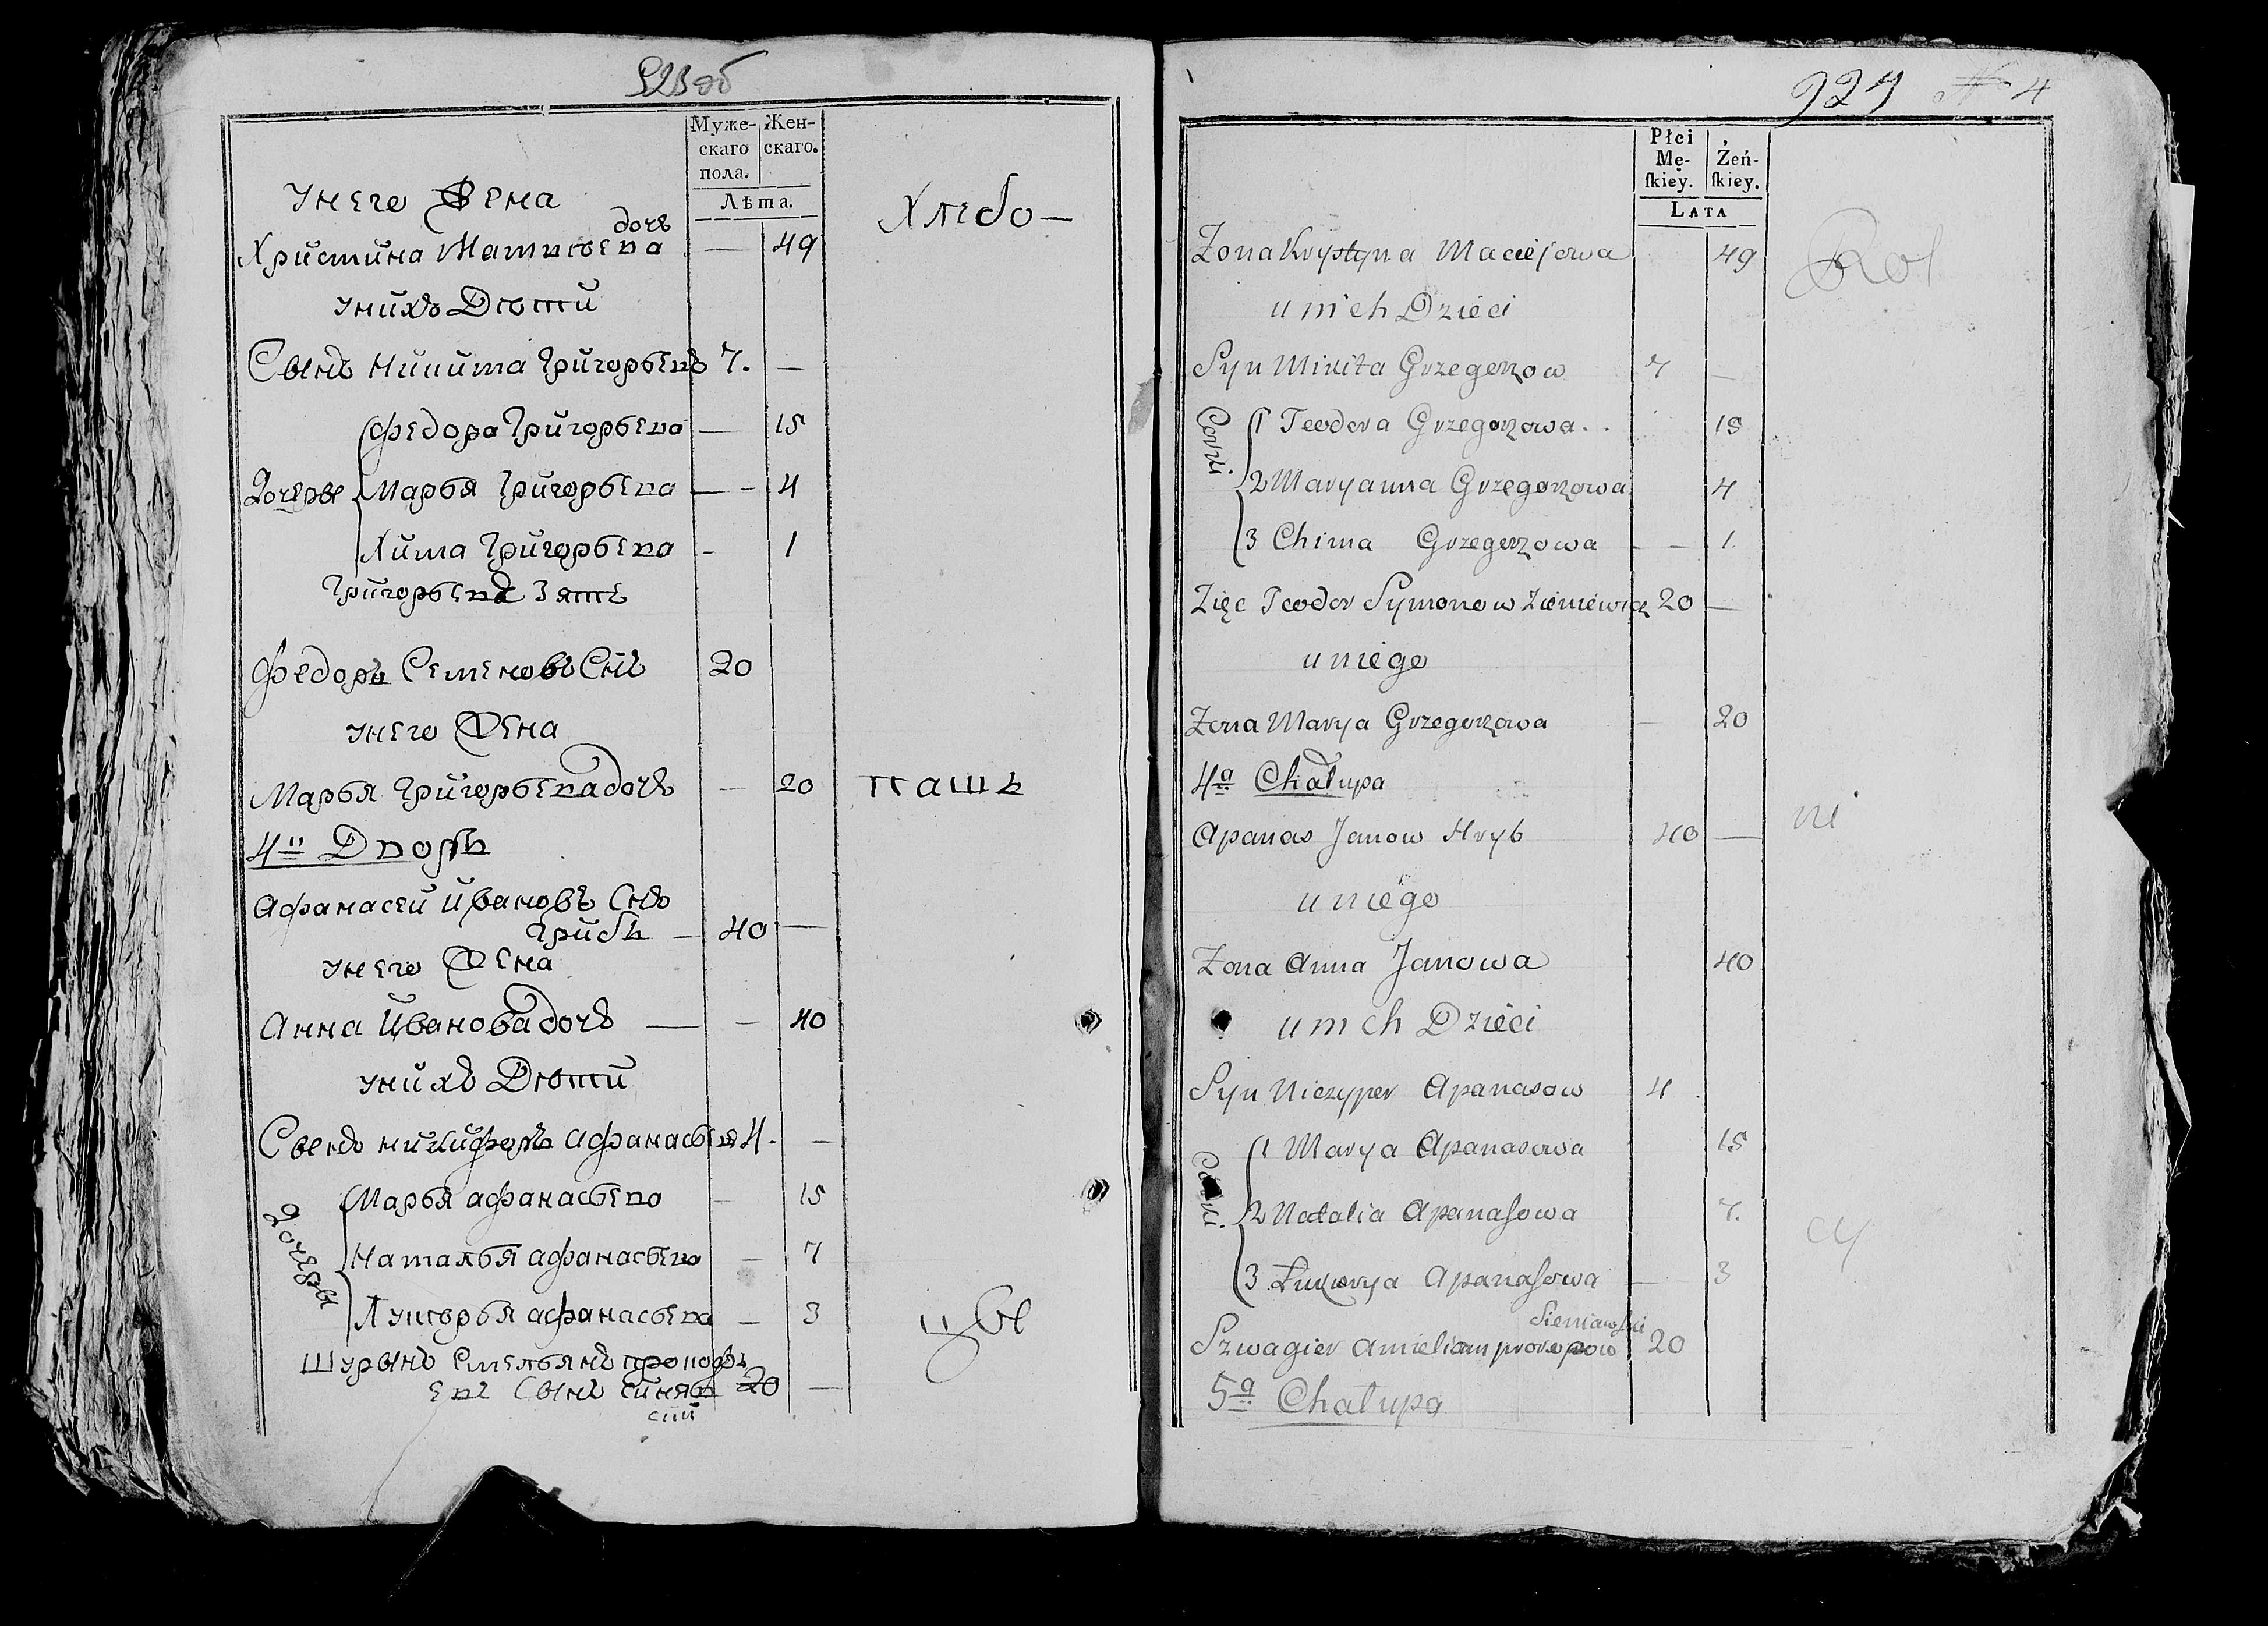 923об
Муже-
скаго
пола.
Жен-
скаго.
Лѣта.
Хлебо-
унего Жена
дочь
Христина Матвѣева — 49
унихъ Дѣти
Сынъ Никита Григорьевъ 7. —
Федора Григорьева — 15
Дочеры Марья Григорьева — 4
Хима Григорьева - 1
Григорьевъ Зять
Федоръ Семеновъ Снъ 20
унего Жена
Марья Григорьева дочь — 20 пашь
4й Дворъ
Афанасей Ивановъ Снъ
Грибъ — 40 —
унего Жена
Анна Иванова дочь — 40
унихъ Дѣти
Сынъ никифоръ афанасьев 4. —
Марья афанасьева — 15
Дочеры
Наталья афанасьева — 7
Лукерья афанасьева — 3
цы
Шурынъ Емельянъ прокофь
евъ Сынъ синяв 20 —
ский
924 № 4
Płci
Mę-
ſkiey.
Żeń-
ſkiey.
Lata
Rol
Żona Krystyna Maciejowa 49
u nich Dzieci
Syn Mikita Grzegorzow 7 —
Corki
1 Teodora Grzegorzowa 15
2 Maryanna Grzegorzowa 4
3 Chima Grzegorzowa — 1.
Zięc Teodor Symonow Zieniewicz 20 —
u niego
Zona Marya Grzegorzowa — 20
4a Chałupa
Apanas Janow Hryb 40 — ni
u niego
Zona Anna Janowa 40
u nich Dzieci
Syn Niczyper Apanasow 4
1 Marya Apanasowa 15
Corki
2 Natalia Apanaſowa 7.
cy
3 Łukierya Apanaſowa — 3
Sieniawſki
Szwagier Amielian prokopow 20
5a Chałupa